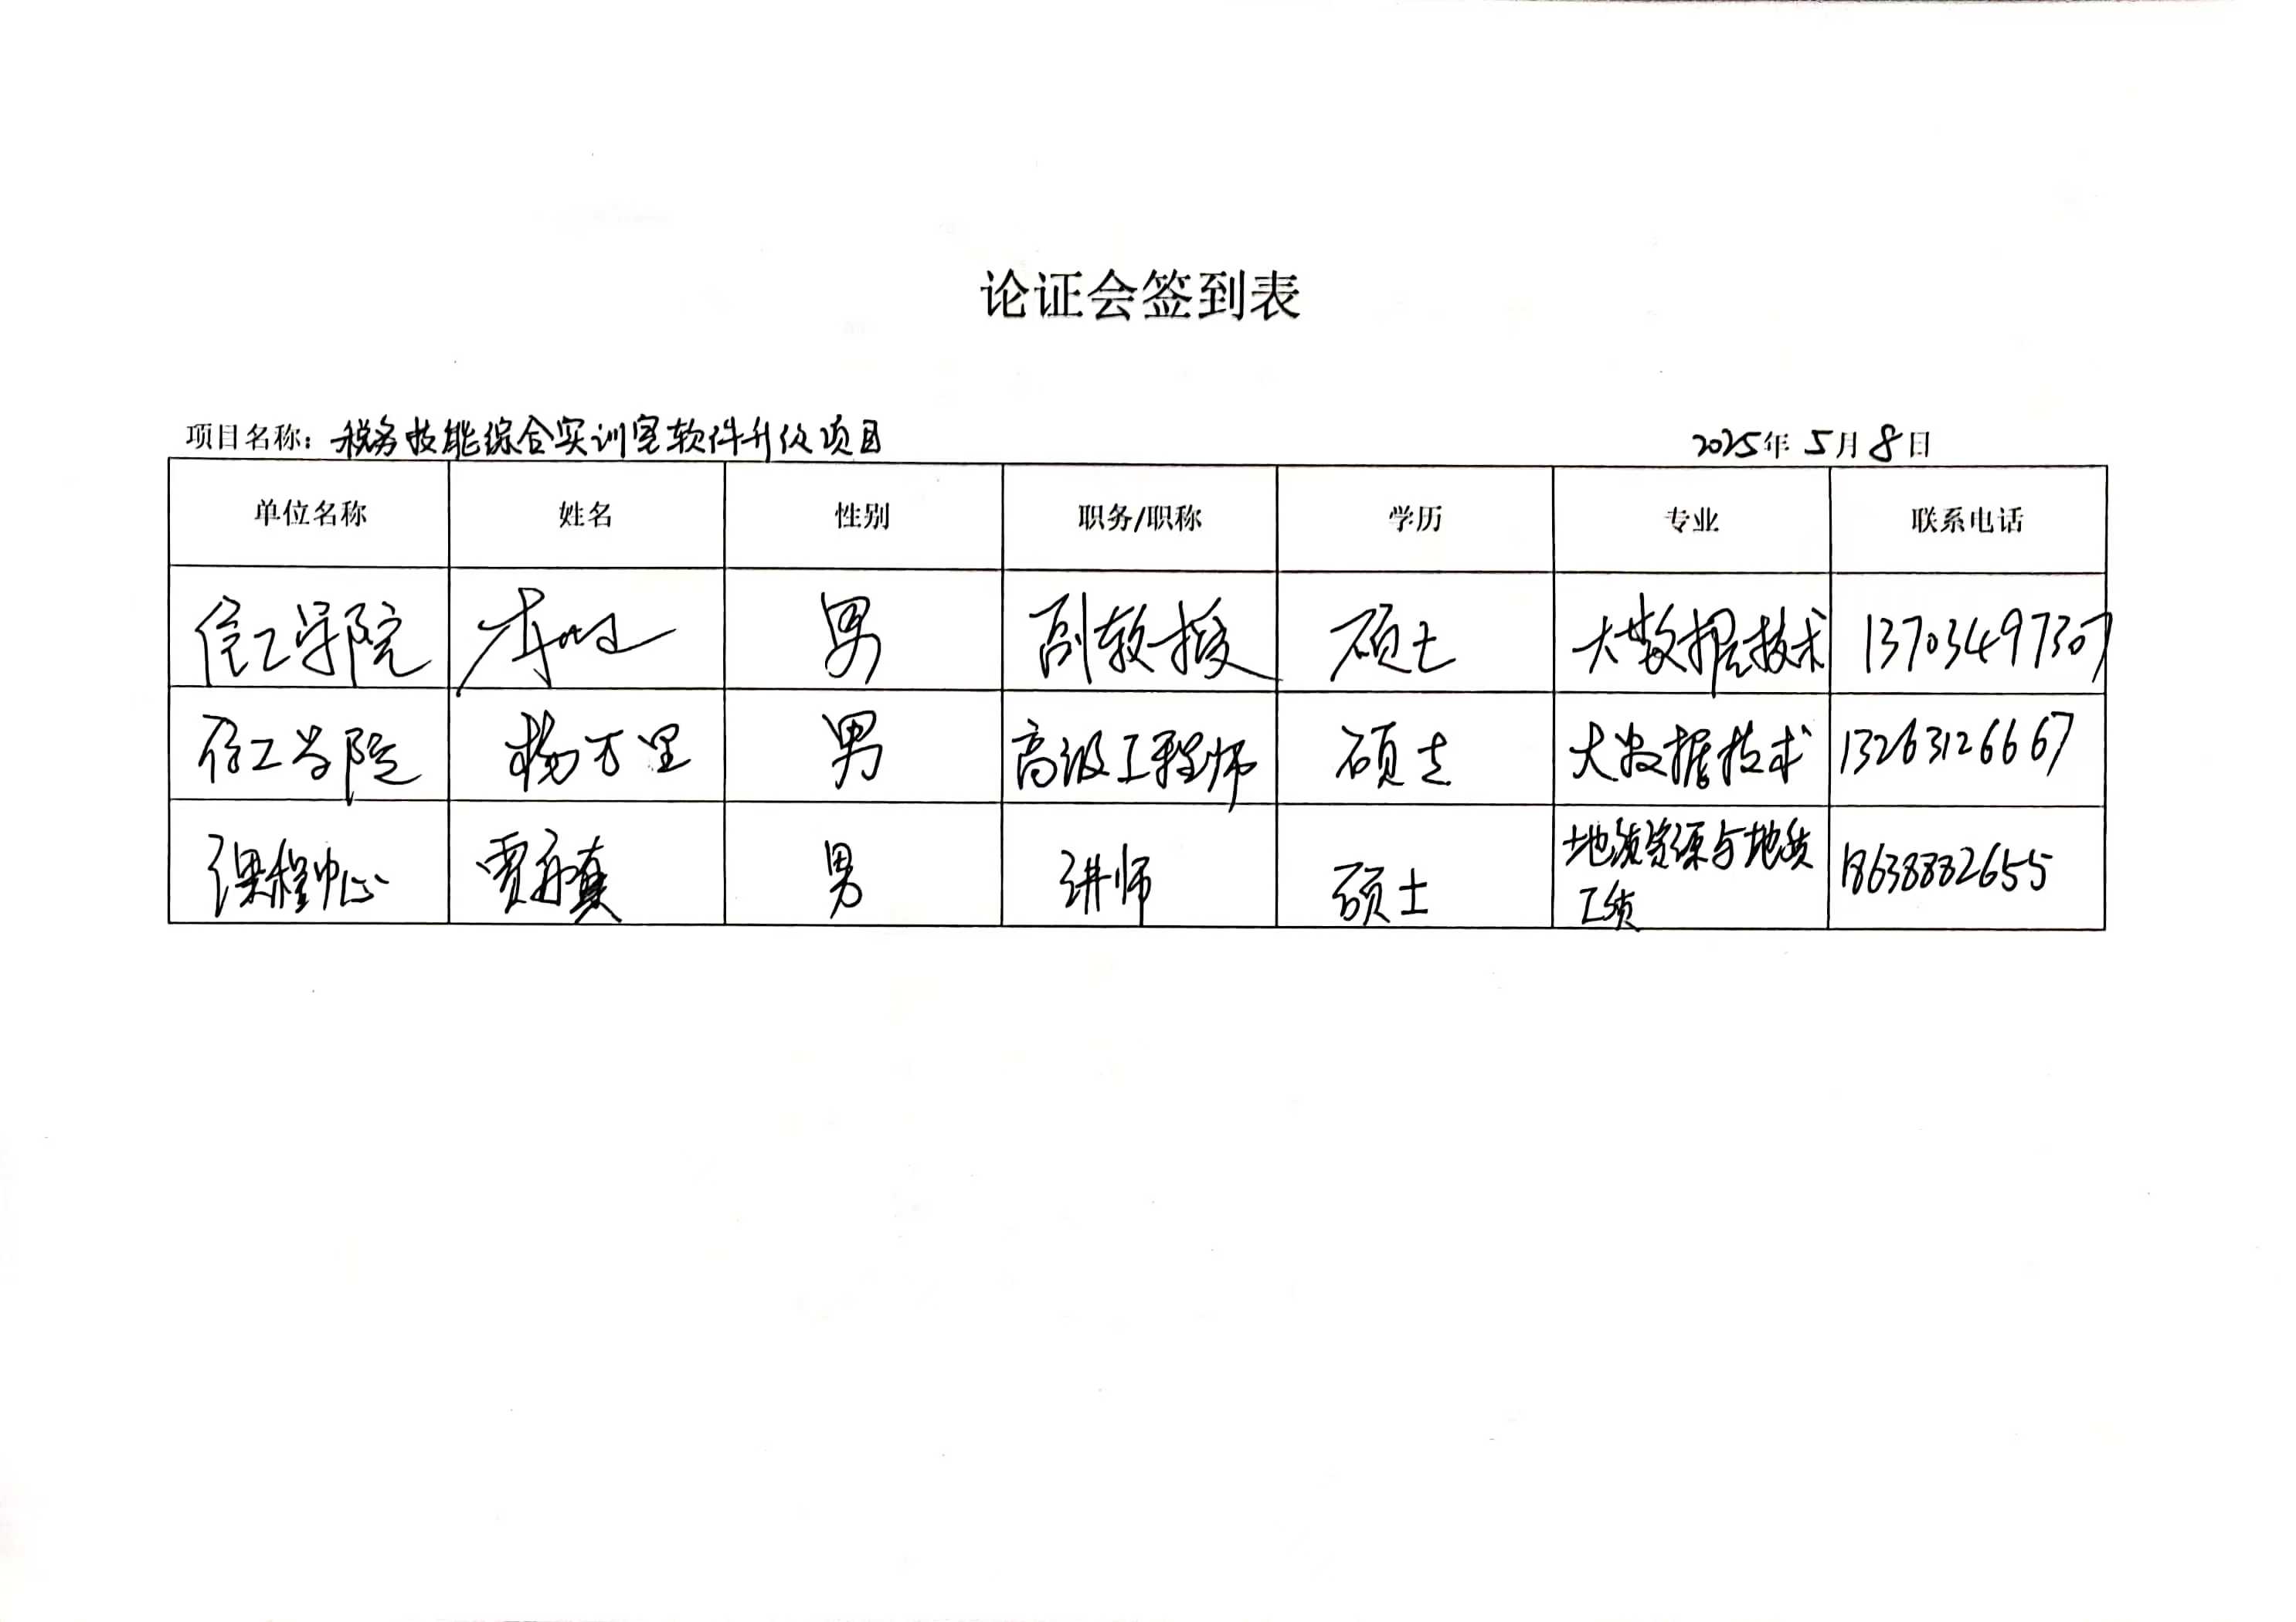 论证会签到表
项目名称：税务技能综合实训室软件升级项目 2025年5月8日
单位名称 姓名 性别 职务/职称 学历 专业 联系电话
信工学院 男 副教授 硕士 大数据技术 13703497307
信工学院 杨万里 男 高级工程师 硕士 大数据技术 13263126667
课程中心 贾永真 男 讲师 硕士 地质资源与地质 18638882655
工质